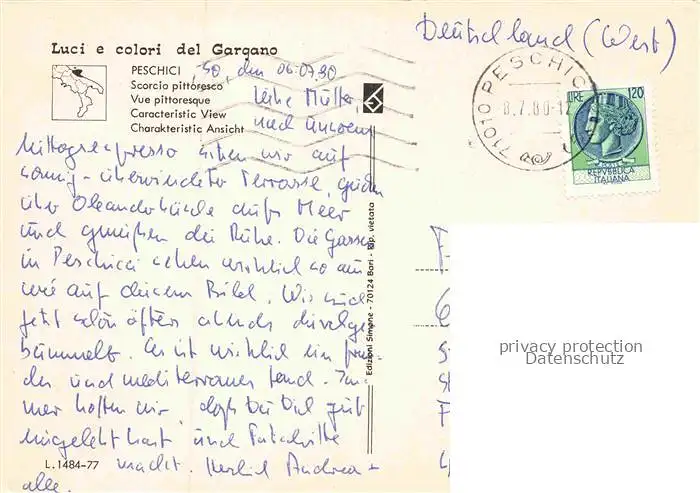 Deutschland (West)
Luci e colori del Gargano
PESCHICI
So, den 06.07.80
Scorcio pittoresco
Vue pittoresque
Caracteristic View
Charakteristic Ansicht
Liebe Mutter,
nach unserem
Mittagsespresso sitzen wir auf
sonnig-überwindeter Terrasse, gucken
über Oleanderbüsche aufs Meer
und genießen die Ruhe. Die Gassen
in Peschici sehen wirklich so aus
wie auf diesem Bild. Wir sind
jetzt schon öfters abends durchge-
bummelt. Es ist wirklich ein
und mediterranes Land. Im-
mer hoffen wir, daß Du Dich gut
eingelebt hast und Fortschritte
machst. Herzlich Andrea +
alle.
L.1484-77
Edizioni Simone - 70124 Bari - Rip. vietata
71010 PESCHICI
8.7.80-12
LIRE 120
POSTE
REPVBBLICA
ITALIANA
privacy protection
Datenschutz